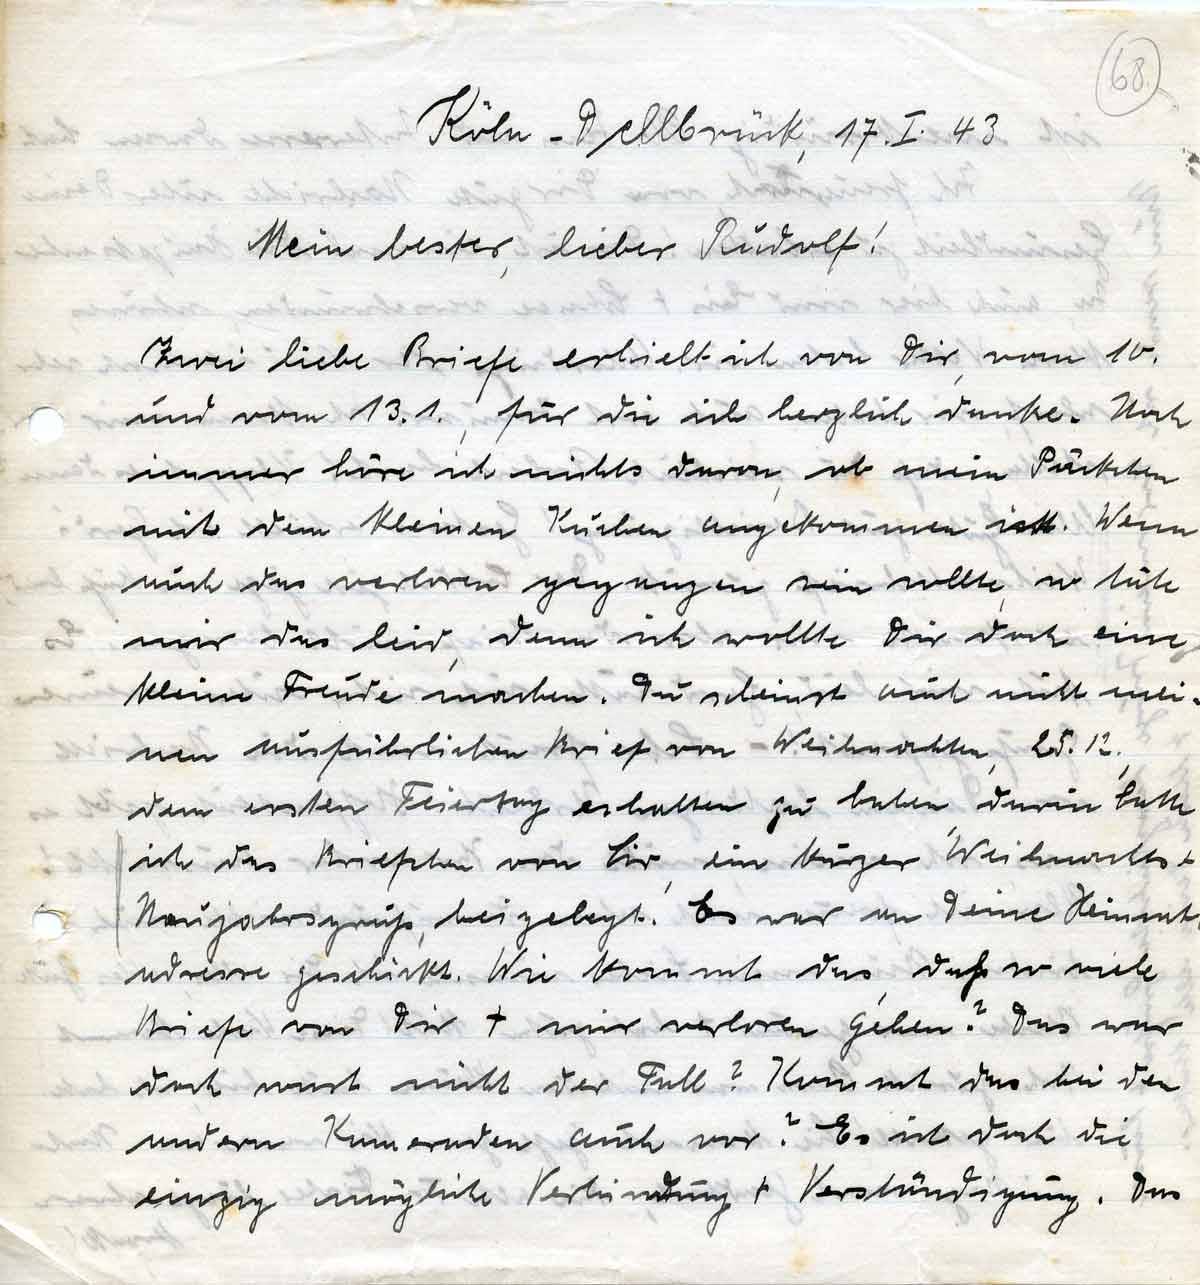 68.
Köln-Dellbrück, 17.I.43
Mein bester, lieber Rudolf!
Zwei liebe Briefe erhielt ich von Dir, vom 10.
und vom 13.1., für die ich herzlich danke. Noch
immer höre ich nichts davon, ob mein Päckchen
mit dem kleinen Kuchen angekommen ist. Wenn
auch das verloren gegangen sein sollte, so täte
mir das leid, denn ich wollte Dir doch eine
kleine Freude machen. Du scheinst auch nicht mei-
nen ausführlichen Brief von Weihnachten, 25.12.,
dem ersten Feiertag erhalten zu haben, darin hatte
ich das Briefchen von Dir, ein kurzer Weihnachts +
Neujahrsgruß, beigelegt. Es war an Deine Heimat-
adresse geschickt. Wie kommt das, daß so viele
Briefe von Dir + mir verloren gehen? Das war
doch sonst nicht der Fall? Kommt das bei den
andern Kameraden auch vor? Es ist doch die
einzig mögliche Verbindung + Verständigung. Das